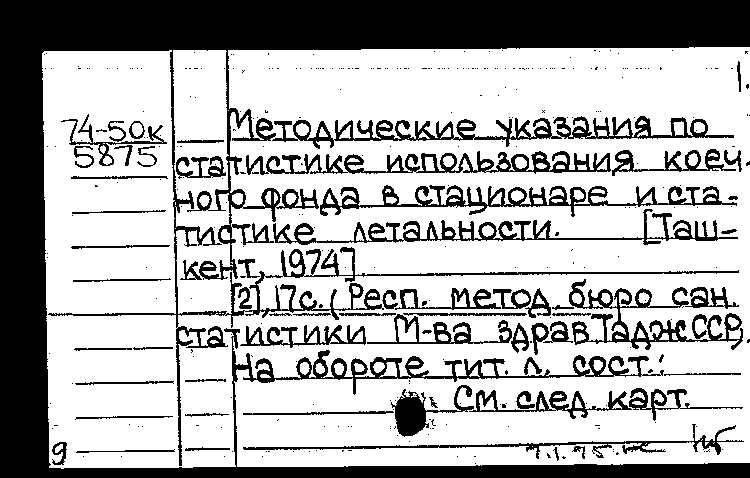 1.
74-50к Методические указания по
5875 статистике использования коеч-
ного фонда в стационаре и ста-
тистике летальности. [Таш-
кент, 1974].
[2], 17с. (Респ. метод. бюро сан.
статистики М-ва здрав. ТаджССР).
На обороте тит. л. сост.:
См. след. карт.
9